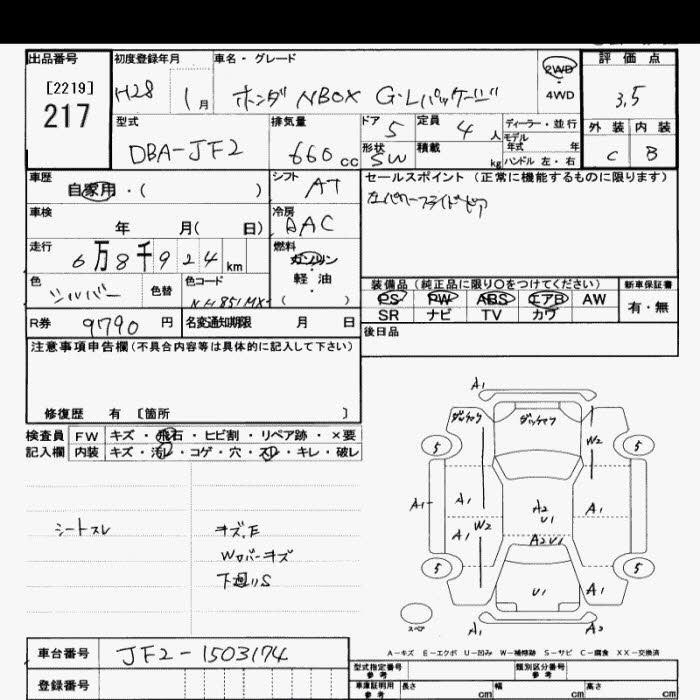 出品番号 初度登録年月 車名・グレード 評価点
[2219] H28 1月 ホンダ NBOX G・Lパッケージ 2WD 4WD 3.5
217
型式 排気量 ドア 定員 ディーラー・並行 外装 内装
DBA-JF2 660cc 5 4人 モデル年式 年 C B
形状 SW 積載 kg ハンドル 左・右
車歴 シフト セールスポイント(正常に機能するものに限ります)
自家用・( ) AT 左パワースライドドア
車検 年 月( 日) 冷房 AAC
走行 6万8千924km 燃料 ガソリン 軽油 ( )
色 シルバー 色替 色コード NH851MX 装備品(純正品に限り○をつけてください) 新車保証書
PS PW ABS エアB AW 有・無
SR ナビ TV カワ
R券 9790円 名変通知期限 月 日 後日品
注意事項申告欄(不具合内容等は具体的に記入して下さい)
修復歴 有 [箇所 ]
検査員 FW キズ・飛石・ヒビ割・リペア跡・×要
記入欄 内装 キズ・汚レ・コゲ・穴・スレ・キレ・破レ
シートスレ キズ.E
Wロバーキズ
下廻りS
A1
W2
5 5
A1 A1 A2 U1 A1
A1 W2 A2U1
5 5
U1 A1
スペア A1 A2
A-キズ E-エクボ U-凹み W-補修跡 S-サビ C-腐食 XX-交換済
車台番号 JF2-1503174
型式指定番号 参考 類別区分番号 参考
登録番号 車庫証明用 参考 長さ cm 幅 cm 高さ cm